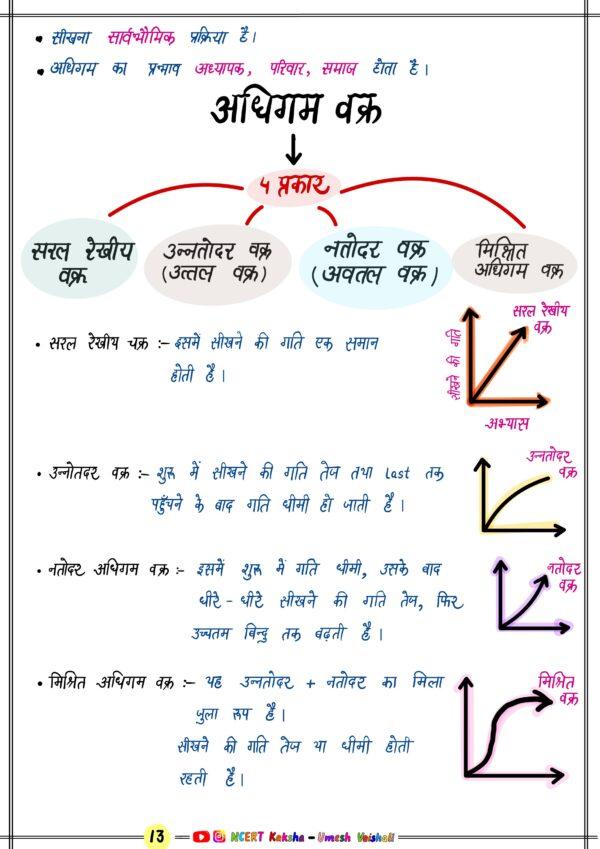 • सीखना सार्वभौमिक प्रक्रिया है।
• अधिगम का प्रभाव अध्यापक, परिवार, समाज होता है।
अधिगम वक्र
4 प्रकार
सरल रेखीय
वक्र
उन्नतोदर वक्र
(उत्तल वक्र)
नतोदर वक्र
(अवतल वक्र)
मिश्रित
अधिगम वक्र
• सरल रेखीय चक्र :- इसमें सीखने की गति एक समान
होती है।
सरल रेखीय
वक्र
सीखने की गति
अभ्यास
• उन्नोतदर वक्र :- शुरू में सीखने की गति तेज तथा last तक
पहुँचने के बाद गति धीमी हो जाती है।
उन्नतोदर
वक्र
• नतोदर अधिगम वक्र :- इसमें शुरू में गति धीमी, उसके बाद
धीरे - धीरे सीखने की गति तेज, फिर
उच्चतम बिन्दु तक बढ़ती है।
नतोदर
वक्र
• मिश्रित अधिगम वक्र :- यह उन्नतोदर + नतोदर का मिला
जुला रूप है।
सीखने की गति तेज या धीमी होती
रहती है।
मिश्रित
वक्र
13
NCERT Kaksha - Umesh Vaishali